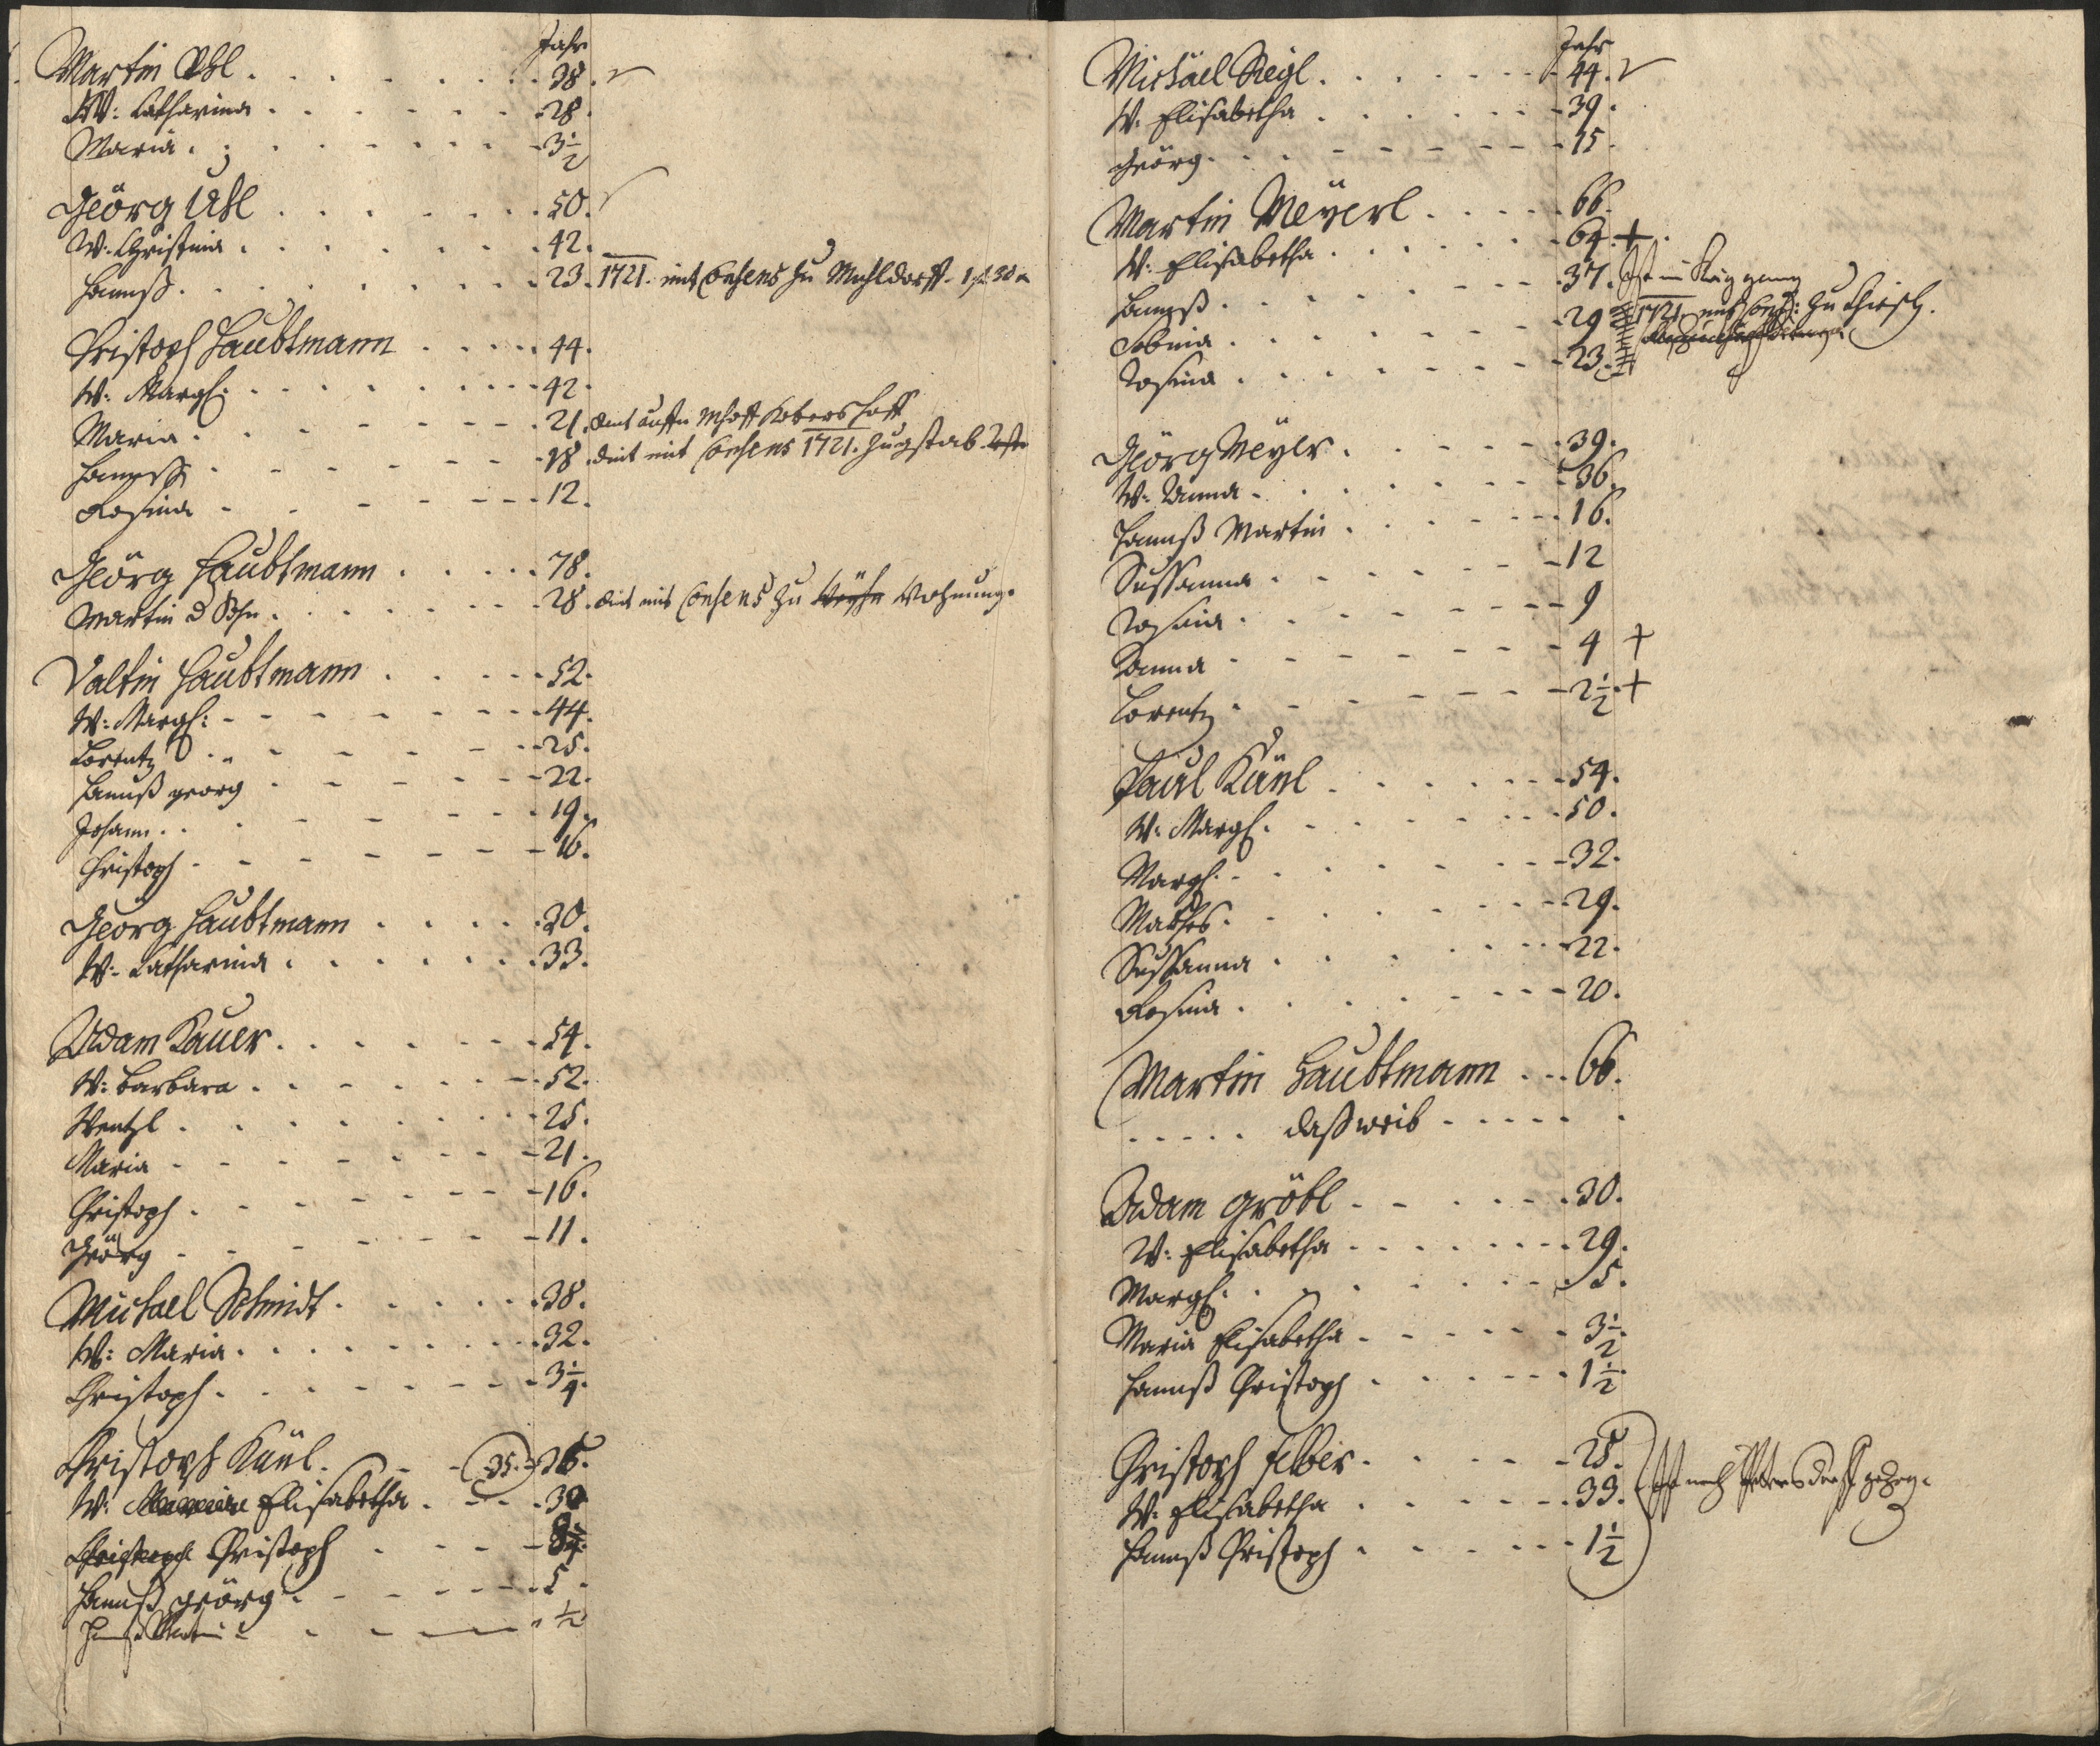 Jahr
Martin Uhl 38.
W: Catharina 28.
Maria 3 1/2
Geörg Uhl 50.
W. Christina 42.
Hannß 23. 1721. mit Consens zu Mühldorff. 1 f. 30
Christoph Haubtmann 44.
W: Margh: 42.
Maria 21. dint
Hannß 18. dint mit Consens 1721.
Rosina 12.
Geörg Haubtmann 78.
Martin d Sohn 28. dint mit Consens zu Wohnung.
Valtin Haubtmann 52.
W: Margh: 44.
Lorentz 25.
Hannß georg 22.
Johann 19.
Christoph 16.
Georg Haubtmann 30.
W: Catharina 33.
Adam Kauer 54.
W: Barbara 52.
Wentzl 25.
Maria 21.
Christoph 16.
Geörg 11.
Michael Schmidt 38.
W: Maria 32.
Christoph 3 1/4.
Christoph Käul 35. 36.
W: Elisabetha 30
Christoph 8
Hannß Geörg 5.
Hannß 1/2
Jahr
Michäel Siegl 44.
W. Elisabetha 39.
Geörg 15.
Martin Meÿerl 66.
W: Elisabetha 64. +
Hannß 37. Ist
Sabina 29 1721. mit Conß: zu
Rosina 23.
Geörg Meÿer 39.
W: Anna 36.
Hannß Martin 16.
Sussanna 12
Rosina 9
Anna 4 +
Lorentz 2 1/2. +
Paul Käul 54.
W: Margh. 50.
Margh. 32.
Mathes 29.
Sussanna 22.
Rosina 20.
Martin Haubtmann 66.
daß weib
Adam Gröbl 30.
W: Elisabetha 29.
Margh: 5.
Maria Elisabetha 3 1/2.
Hannß Christoph 1 1/2.
Christoph Felber 25.
W: Elisabetha 33. Ist nach Petersdorff gezog.
Hannß Christoph 1 1/2